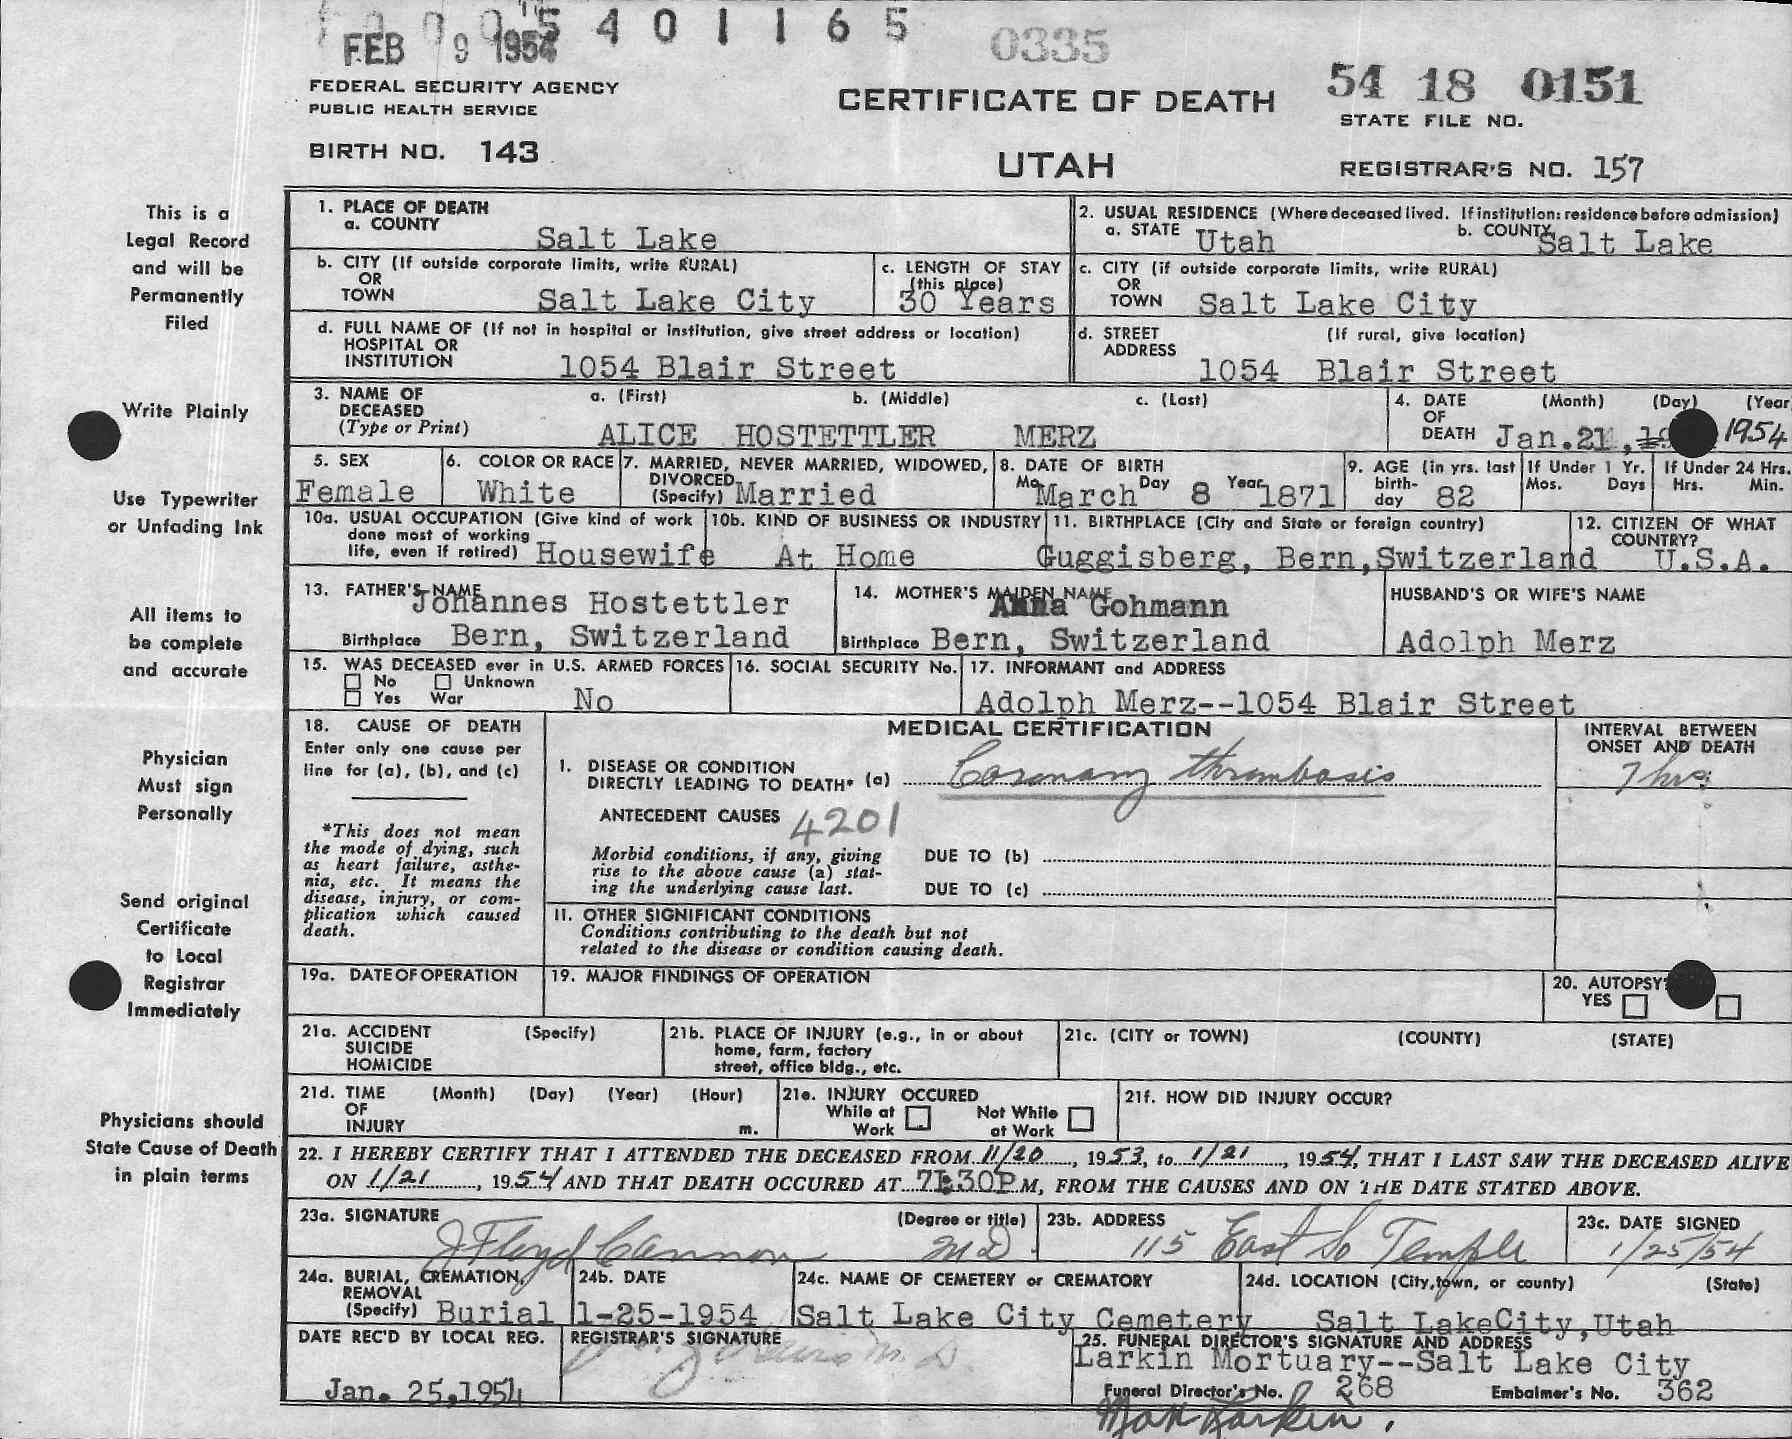 FEB 9 1954
5 4 0 1 1 6 5
0335
FEDERAL SECURITY AGENCY
PUBLIC HEALTH SERVICE
CERTIFICATE OF DEATH
54 18 0151
STATE FILE NO.
BIRTH NO. 143
UTAH
REGISTRAR'S NO. 157
This is a
Legal Record
and will be
Permanently
Filed
Write Plainly
Use Typewriter
or Unfading Ink
All items to
be complete
and accurate
Physician
Must sign
Personally
Send original
Certificate
to Local
Registrar
Immediately
Physicians should
State Cause of Death
in plain terms
1. PLACE OF DEATH
a. COUNTY
Salt Lake
2. USUAL RESIDENCE (Where deceased lived. If institution: residence before admission)
a. STATE Utah b. COUNTY Salt Lake
b. CITY (If outside corporate limits, write RURAL)
OR
TOWN Salt Lake City
c. LENGTH OF STAY
(this place)
30 Years
c. CITY (if outside corporate limits, write RURAL)
OR
TOWN Salt Lake City
d. FULL NAME OF (If not in hospital or institution, give street address or location)
HOSPITAL OR
INSTITUTION 1054 Blair Street
d. STREET (If rural, give location)
ADDRESS
1054 Blair Street
3. NAME OF a. (First) b. (Middle) c. (Last)
DECEASED
(Type or Print) ALICE HOSTETTLER MERZ
4. DATE (Month) (Day) (Year
OF
DEATH Jan.21, 1954
5. SEX
Female
6. COLOR OR RACE
White
7. MARRIED, NEVER MARRIED, WIDOWED,
DIVORCED
(Specify) Married
8. DATE OF BIRTH
Mo. March Day 8 Year 1871
9. AGE (in yrs. last
birth-
day 82
If Under 1 Yr.
Mos. Days
If Under 24 Hrs.
Hrs. Min.
10a. USUAL OCCUPATION (Give kind of work
done most of working
life, even if retired) Housewife
10b. KIND OF BUSINESS OR INDUSTRY
At Home
11. BIRTHPLACE (City and State or foreign country)
Guggisberg, Bern,Switzerland
12. CITIZEN OF WHAT
COUNTRY?
U.S.A.
13. FATHER'S NAME
Johannes Hostettler
Birthplace Bern, Switzerland
14. MOTHER'S MAIDEN NAME
Anna Gohmann
Birthplace Bern, Switzerland
HUSBAND'S OR WIFE'S NAME
Adolph Merz
15. WAS DECEASED ever in U.S. ARMED FORCES
No Unknown
Yes War No
16. SOCIAL SECURITY No.
17. INFORMANT and ADDRESS
Adolph Merz--1054 Blair Street
18. CAUSE OF DEATH
Enter only one cause per
line for (a), (b), and (c)
*This does not mean
the mode of dying, such
as heart failure, asthe-
nia, etc. It means the
disease, injury, or com-
plication which caused
death.
MEDICAL CERTIFICATION
INTERVAL BETWEEN
ONSET AND DEATH
1. DISEASE OR CONDITION
DIRECTLY LEADING TO DEATH* (a) Coronary thrombosis
7 hrs.
ANTECEDENT CAUSES 4201
Morbid conditions, if any, giving
rise to the above cause (a) stat-
ing the underlying cause last.
DUE TO (b)
DUE TO (c)
11. OTHER SIGNIFICANT CONDITIONS
Conditions contributing to the death but not
related to the disease or condition causing death.
19a. DATE OF OPERATION
19. MAJOR FINDINGS OF OPERATION
20. AUTOPSY?
YES
21a. ACCIDENT (Specify)
SUICIDE
HOMICIDE
21b. PLACE OF INJURY (e.g., in or about
home, farm, factory
street, office bldg., etc.
21c. (CITY or TOWN) (COUNTY) (STATE)
21d. TIME (Month) (Day) (Year) (Hour)
OF
INJURY m.
21e. INJURY OCCURED
While at Not While
Work at Work
21f. HOW DID INJURY OCCUR?
22. I HEREBY CERTIFY THAT I ATTENDED THE DECEASED FROM 11/20, 1953, to 1/21, 1954, THAT I LAST SAW THE DECEASED ALIVE
ON 1/21, 1954 AND THAT DEATH OCCURED AT 7:30P M, FROM THE CAUSES AND ON THE DATE STATED ABOVE.
23a. SIGNATURE (Degree or title)
J Floyd Cannon MD
23b. ADDRESS
115 East So Temple
23c. DATE SIGNED
1/25/54
24a. BURIAL, CREMATION,
REMOVAL
(Specify) Burial
24b. DATE
1-25-1954
24c. NAME OF CEMETERY or CREMATORY
Salt Lake City Cemetery
24d. LOCATION (City, town, or county) (State)
Salt LakeCity,Utah
DATE REC'D BY LOCAL REG.
Jan. 25,1954
REGISTRAR'S SIGNATURE
M. D.
25. FUNERAL DIRECTOR'S SIGNATURE AND ADDRESS
Larkin Mortuary--Salt Lake City
Funeral Director's No. 268 Embalmer's No. 362
Larkin